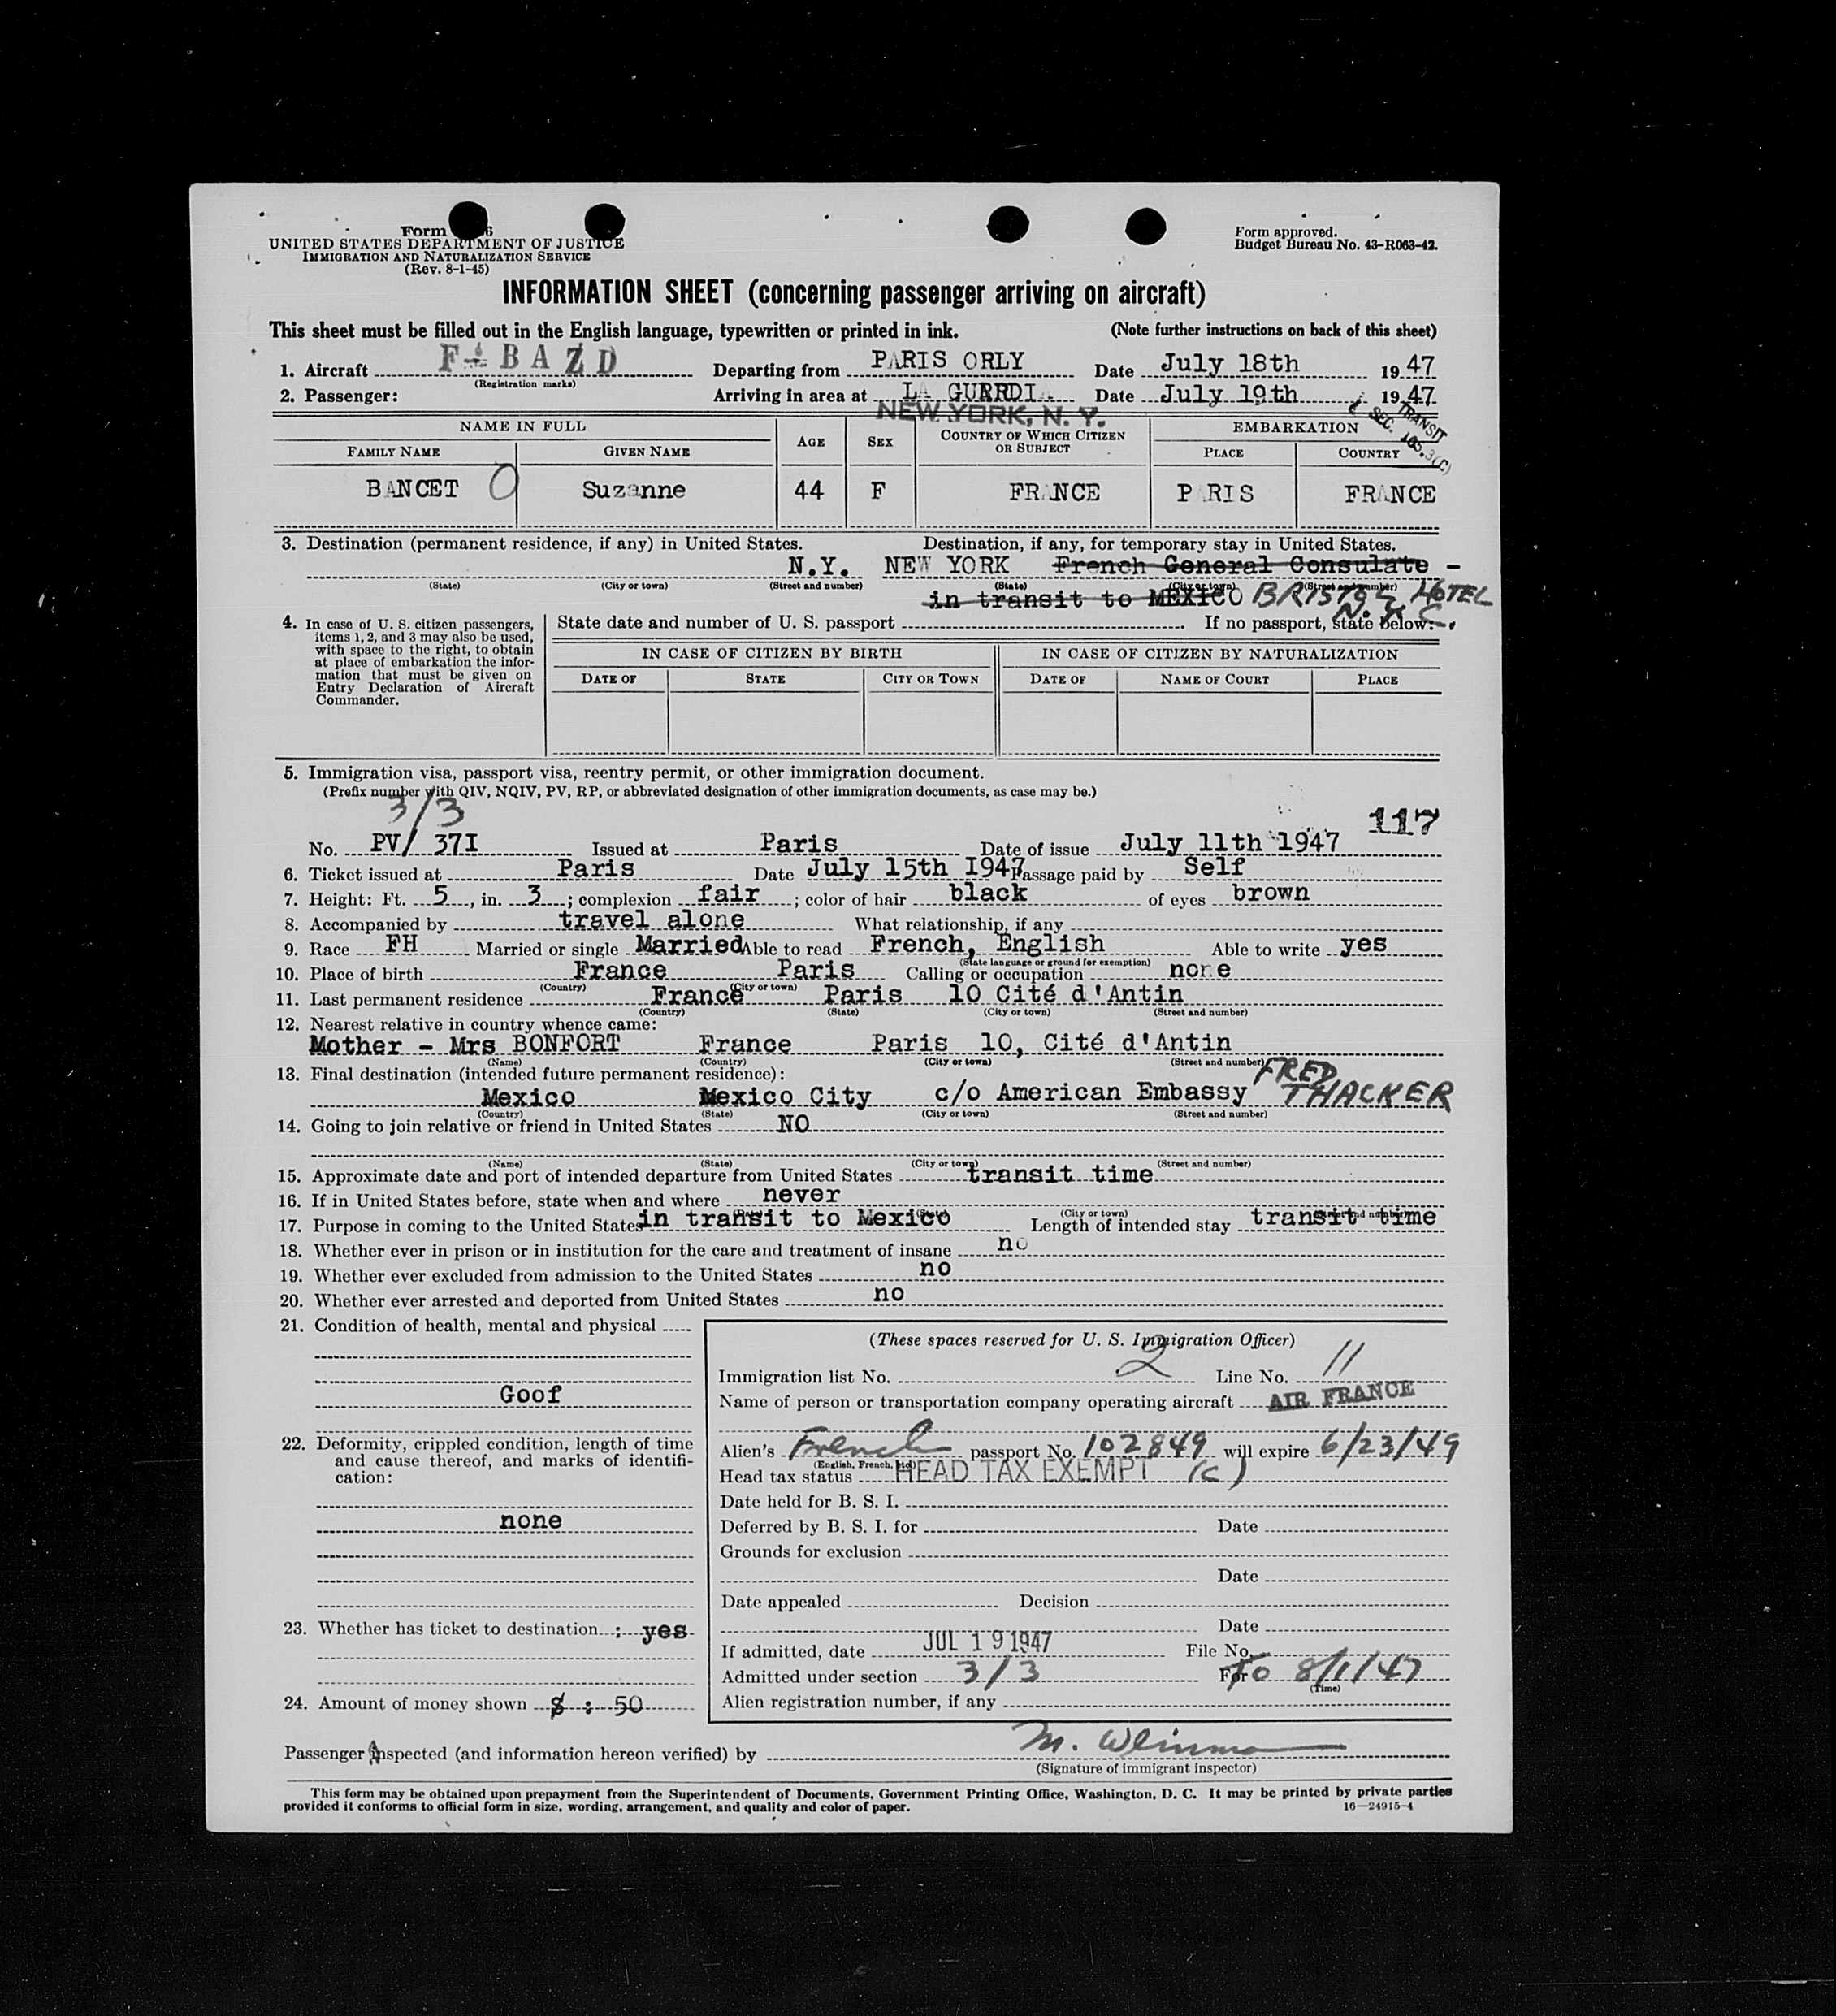 Form 6
UNITED STATES DEPARTMENT OF JUSTICE
IMMIGRATION AND NATURALIZATION SERVICE
(Rev. 8-1-45)
Form approved.
Budget Bureau No. 43-R063-42.
INFORMATION SHEET (concerning passenger arriving on aircraft)
This sheet must be filled out in the English language, typewritten or printed in ink. (Note further instructions on back of this sheet)
1. Aircraft F-BAZD Departing from PARIS ORLY Date July 18th 1947
(Registration marks)
2. Passenger: Arriving in area at LA GUARDIA Date July 19th 1947
NEW YORK, N. Y.
TRANSIT
SEC. 165.3(C)
NAME IN FULL AGE SEX COUNTRY OF WHICH CITIZEN OR SUBJECT EMBARKATION
FAMILY NAME GIVEN NAME PLACE COUNTRY
BANCET Suzanne 44 F FRANCE PARIS FRANCE
3. Destination (permanent residence, if any) in United States. Destination, if any, for temporary stay in United States.
N.Y. NEW YORK French General Consulate -
(State) (City or town) (Street and number) (State) (City or town) (Street and number)
in transit to MEXICO BRISTOL HOTEL
N.Y.C.
4. In case of U. S. citizen passengers, items 1, 2, and 3 may also be used, with space to the right, to obtain at place of embarkation the information that must be given on Entry Declaration of Aircraft Commander.
State date and number of U. S. passport If no passport, state below:
IN CASE OF CITIZEN BY BIRTH IN CASE OF CITIZEN BY NATURALIZATION
DATE OF STATE CITY OR TOWN DATE OF NAME OF COURT PLACE
5. Immigration visa, passport visa, reentry permit, or other immigration document.
(Prefix number with QIV, NQIV, PV, RP, or abbreviated designation of other immigration documents, as case may be.)
3/3
117
No. PV/ 37I Issued at Paris Date of issue July 11th 1947
6. Ticket issued at Paris Date July 15th I947 Passage paid by Self
7. Height: Ft. 5, in. 3; complexion fair; color of hair black of eyes brown
8. Accompanied by travel alone What relationship, if any
9. Race FH Married or single Married Able to read French, English Able to write yes
(State language or ground for exemption)
10. Place of birth France Paris Calling or occupation none
(Country) (City or town)
11. Last permanent residence France Paris 10 Cité d'Antin
(Country) (State) (City or town) (Street and number)
12. Nearest relative in country whence came:
Mother - Mrs BONFORT France Paris 10, Cité d'Antin
(Name) (Country) (City or town) (Street and number)
13. Final destination (intended future permanent residence):
Mexico Mexico City c/o American Embassy FRED THACKER
(Country) (State) (City or town) (Street and number)
14. Going to join relative or friend in United States NO
(Name) (State) (City or town) (Street and number)
15. Approximate date and port of intended departure from United States transit time
16. If in United States before, state when and where never
(City or town) (Street and number)
17. Purpose in coming to the United States in transit to Mexico Length of intended stay transit time
18. Whether ever in prison or in institution for the care and treatment of insane no
19. Whether ever excluded from admission to the United States no
20. Whether ever arrested and deported from United States no
21. Condition of health, mental and physical
Goof
22. Deformity, crippled condition, length of time and cause thereof, and marks of identification:
none
23. Whether has ticket to destination : yes
24. Amount of money shown $ : 50
(These spaces reserved for U. S. Immigration Officer)
Immigration list No. 2 Line No. 11
Name of person or transportation company operating aircraft AIR FRANCE
Alien's French passport No. 102849 will expire 6/23/49
(English, French, etc.)
Head tax status HEAD TAX EXEMPT (c)
Date held for B. S. I.
Deferred by B. S. I. for Date
Grounds for exclusion
Date
Date appealed Decision
Date
If admitted, date JUL 19 1947 File No.
Admitted under section 3/3 For To 8/1/47
(Time)
Alien registration number, if any
Passenger inspected (and information hereon verified) by M.
(Signature of immigrant inspector)
This form may be obtained upon prepayment from the Superintendent of Documents, Government Printing Office, Washington, D. C. It may be printed by private parties
provided it conforms to official form in size, wording, arrangement, and quality and color of paper. 16—24915-4